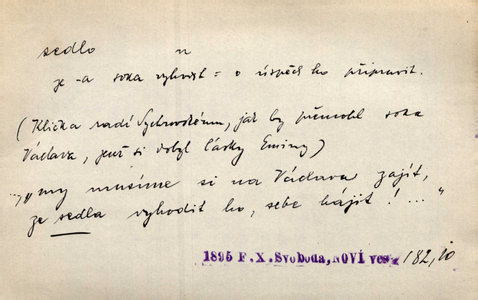 sedlo n
ze -a soka vyhodit = o úspěch ho připravit.
(Klička radí Sychrovskému, jak by přemohl soka
Václava, jenž si dobyl lásky Eminy)
„my musíme si na Václava zajít,
ze sedla vyhodit ho, sebe hájit! ..."
1895 F.X.Svoboda, NOVÍ ves. 182,10